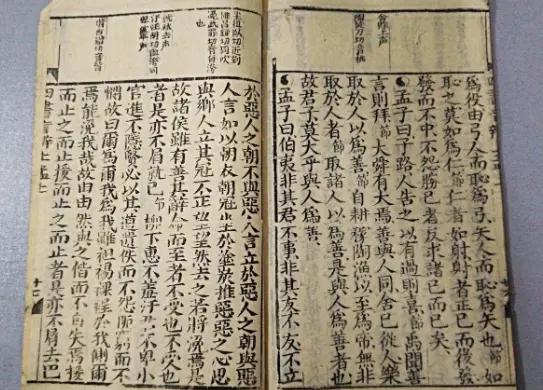 爲役由弓人而恥爲弓矢人而恥爲矢也節如
恥之莫如爲仁節仁者如射射者正己而後發
發而不中不怨勝己者反求諸己而已矣
孟子曰子路人告之以有過則喜節禹聞善
言則拜節大舜有大焉善與人同舍已從人樂
取於人以爲善節自耕稼陶漁以至爲帝無非
取於人者節取諸人以爲善是與人爲善者也
故君子莫大乎與人爲善
孟子曰伯夷非其君不事非其友不友不立
於惡人之朝不與惡人言立於惡人之朝與惡
人言如以朝衣朝冠坐於塗炭推惡惡之心思
與鄉人立其冠不正望望然去之若將浼焉是
故諸侯雖有善其辭命而至者不受也不受也
者是亦不屑就已節柳下惠不羞汙君不卑小
官進不隱賢必以其道遺佚而不怨阨窮而不
憫故曰爾爲爾我爲我雖袒裼裸裎於我側爾
焉能浼我哉故由由然與之偕而不自失焉援
而止之而止援而止之而止者是亦不屑去巳
四書